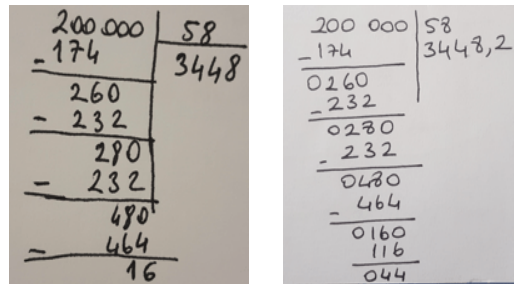 200.000 58
- 174 3448
260
- 232
280
- 232
480
- 464
16
200 000 58
- 174 3448,2
0260
- 232
0280
- 232
0480
- 464
0160
116
044